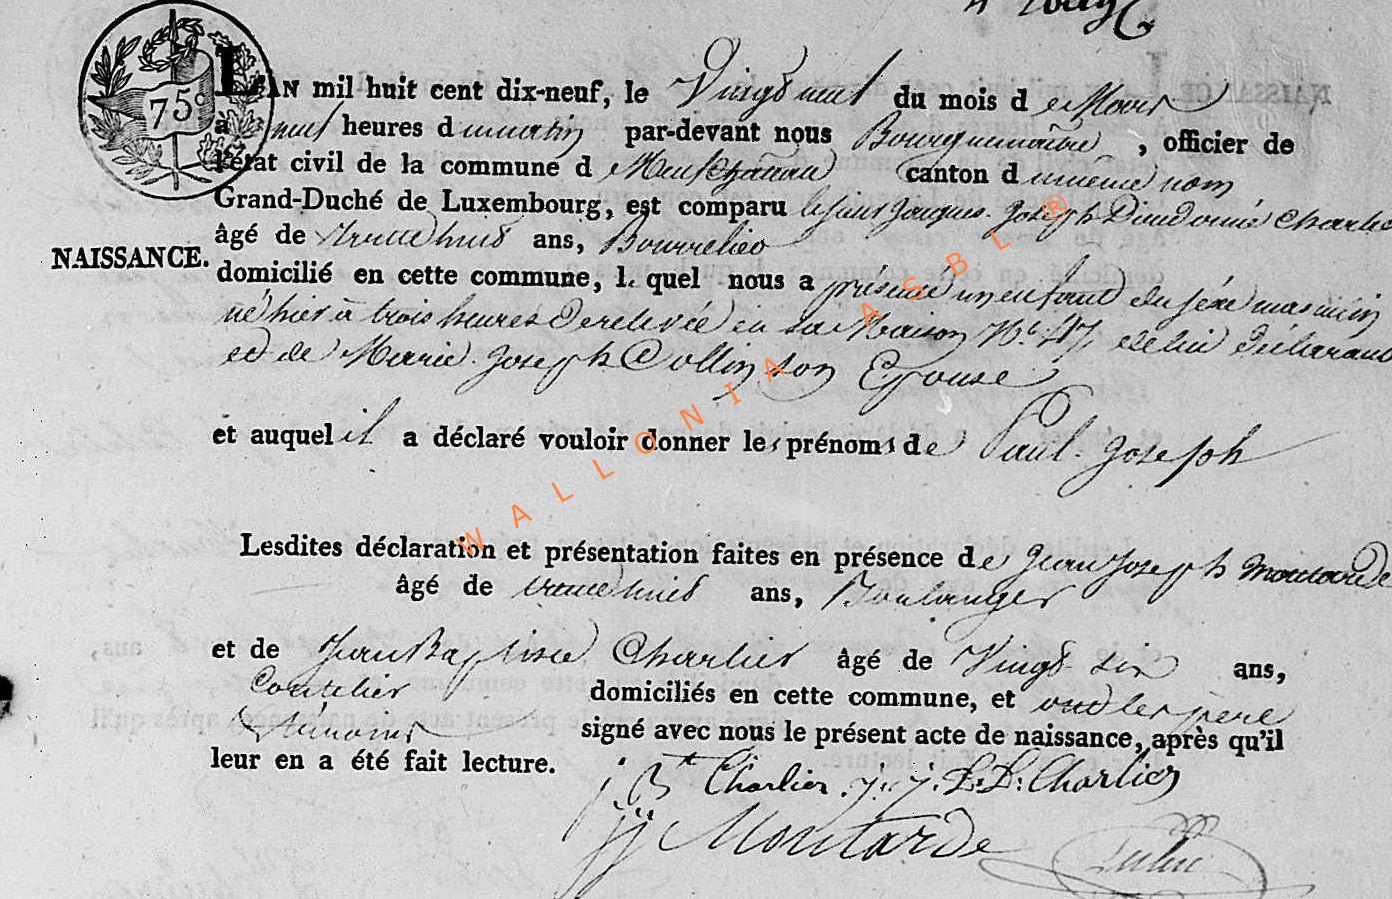 75c
L'AN mil huit cent dix-neuf, le Vingt neuf du mois de Mars
à neuf heures du matin par-devant nous Bourguemaitre , officier de
l'état civil de la commune d Neufchateau canton du même nom
Grand-Duché de Luxembourg, est comparu le sieur Jacques Joseph Dieudonné Charlier
âgé de trente huit ans, Bourrelier
NAISSANCE.
domicilié en cette commune, lequel nous a présenté un enfant du sexe masculin
né hier à trois heures de relevée en sa Maison No 47, de lui déclarant
et de Marie Joseph Collin son Epouse
et auquel il a déclaré vouloir donner les prénoms de Paul Joseph
Lesdites déclaration et présentation faites en présence de Jean Joseph Moutarde
âgé de trente huit ans, Boulanger
et de Jean Baptiste Charlier âgé de Vingt six ans,
Coutelier domiciliés en cette commune, et ont les père
& témoins signé avec nous le présent acte de naissance, après qu'il
leur en a été fait lecture.
j Bt Charlier j. j. Charlier
jj Moutarde
WALLONIA ASBL ®